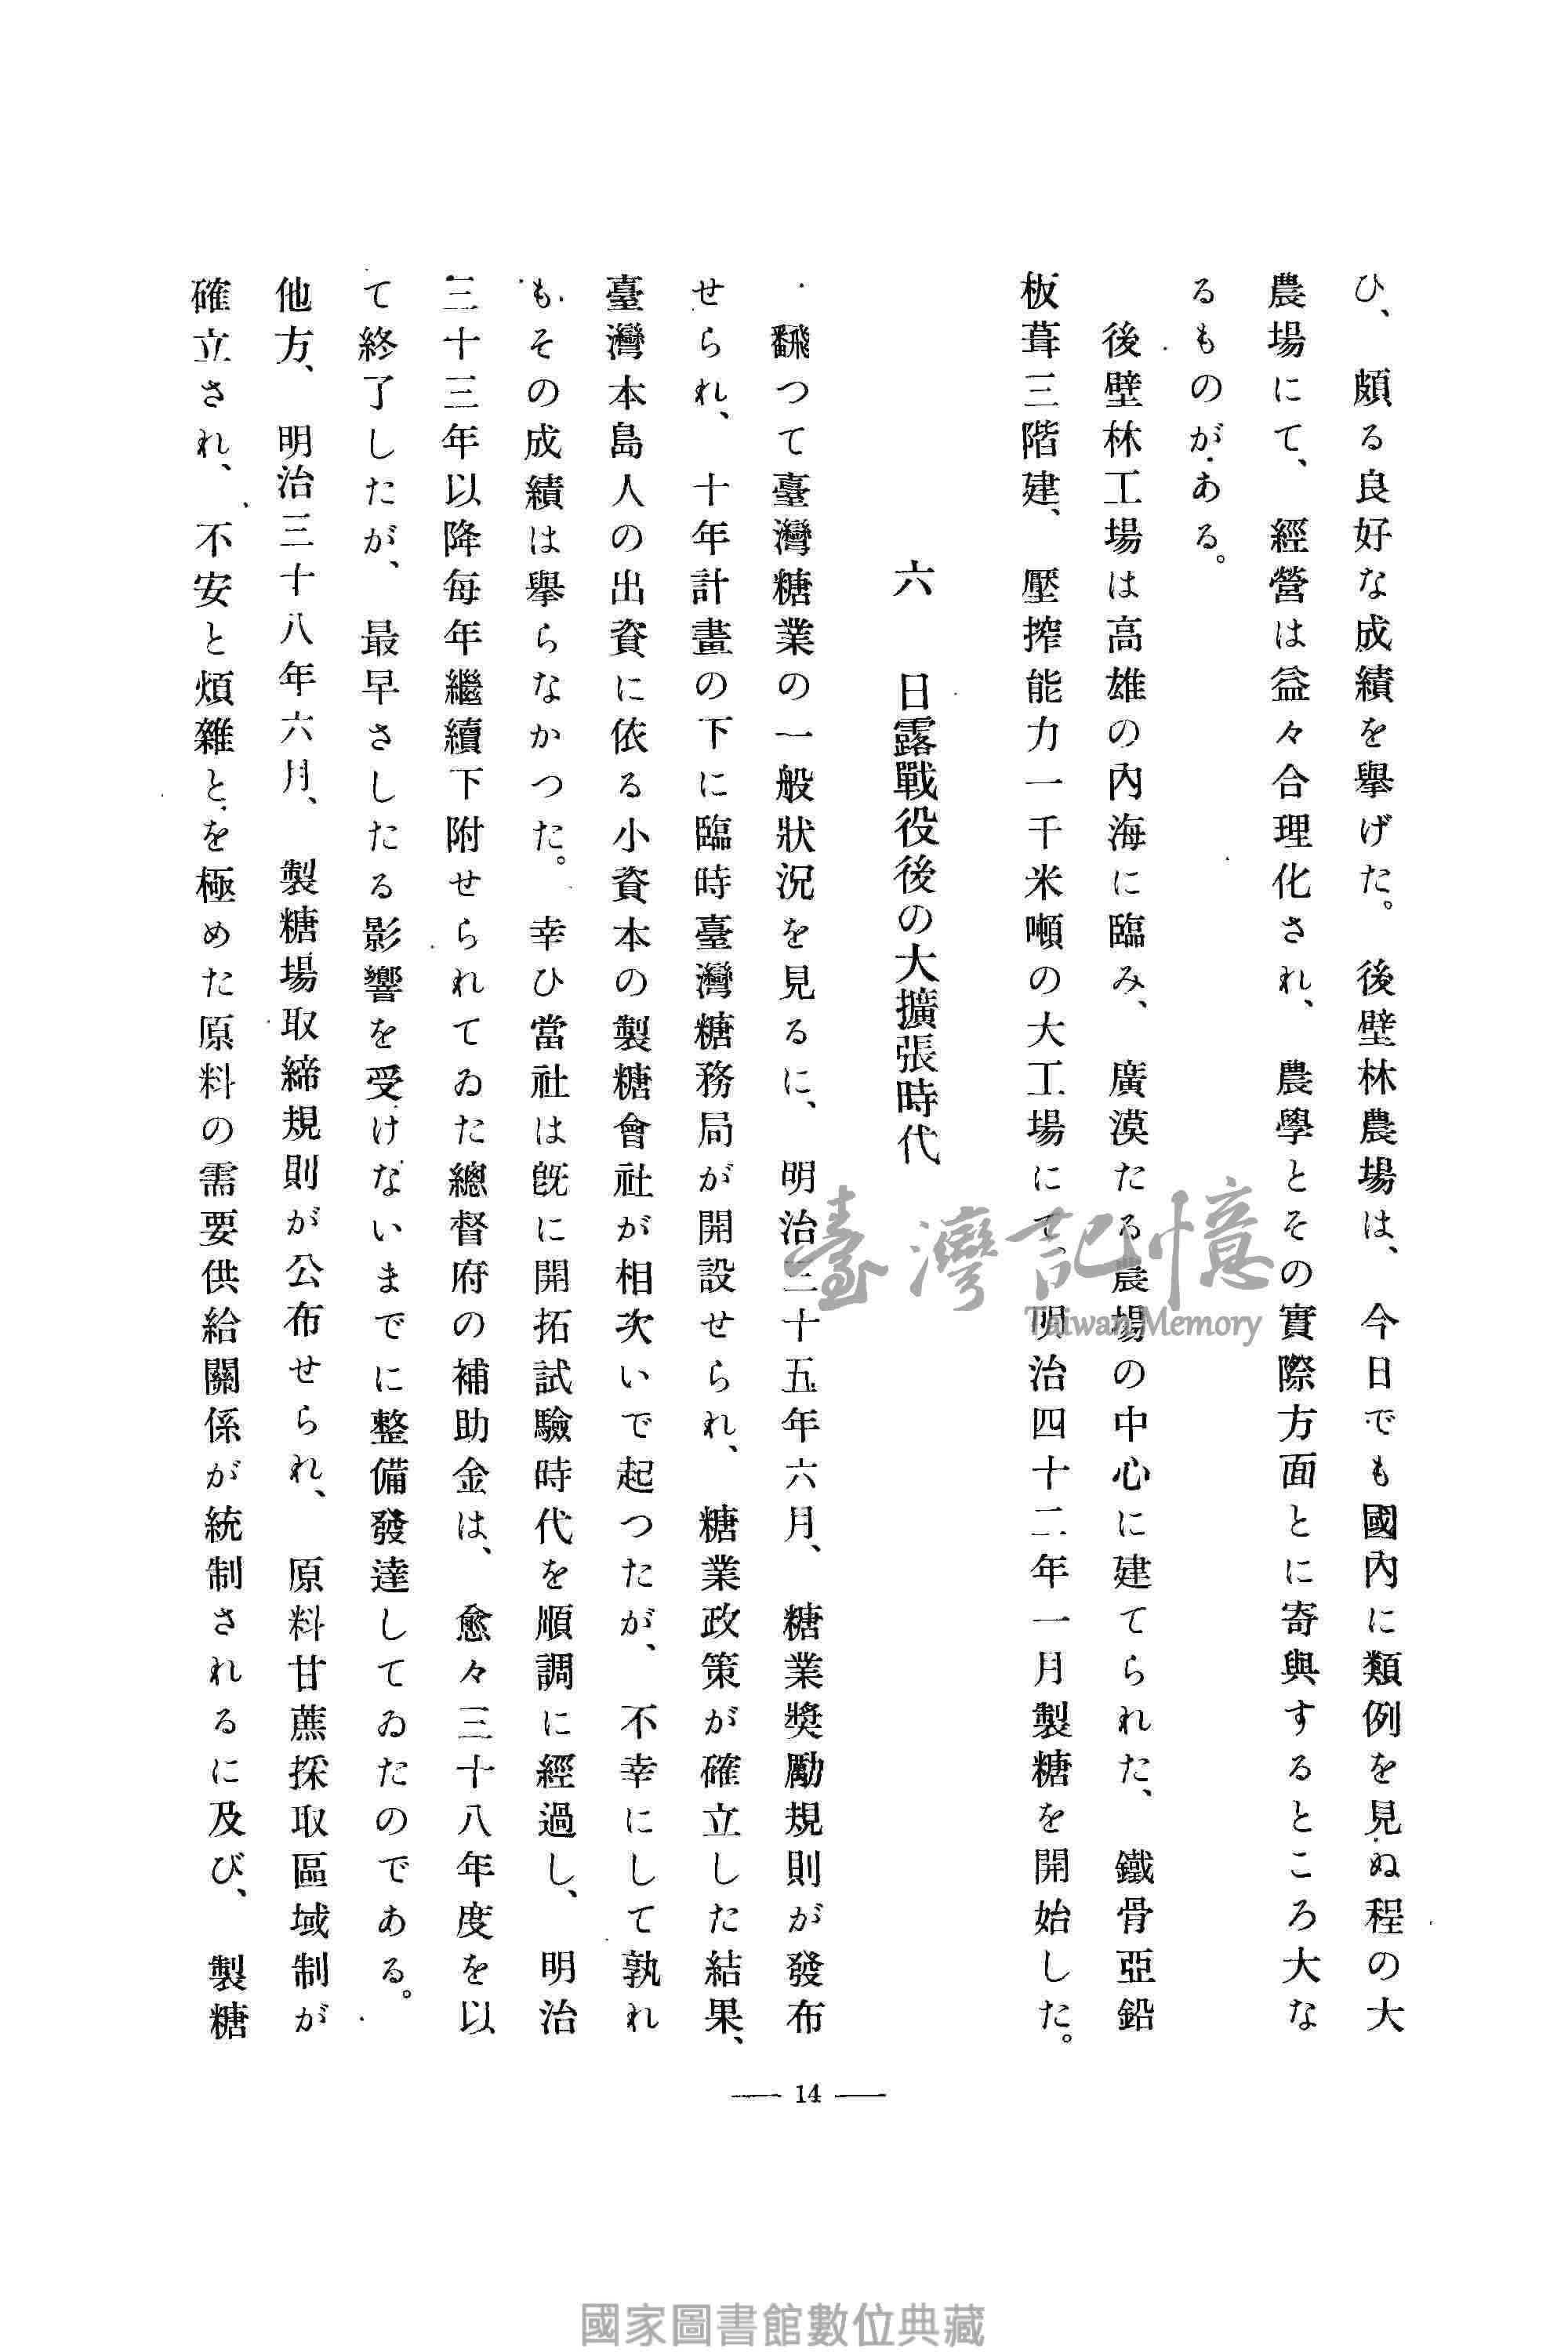 ひ、頗る良好な成績を擧げた。後壁林農場は、今日でも國內に類例を見ぬ程の大
農場にて、經營は益々合理化され、農學とその實際方面とに寄與するところ大な
るものがある。
後壁林工場は高雄の內海に臨み、廣漠たる農場の中心に建てられた、鐵骨亞鉛
板葺三階建、壓搾能力一千米噸の大工場にて、明治四十二年一月製糖を開始した。
六 日露戰役後の大擴張時代
飜つて臺灣糖業の一般狀況を見るに、明治三十五年六月、糖業獎勵規則が發布
せられ、十年計畫の下に臨時臺灣糖務局が開設せられ、糖業政策が確立した結果、
臺灣本島人の出資に依る小資本の製糖會社が相次いで起つたが、不幸にして孰れ
もその成績は擧らなかつた。幸ひ當社は既に開拓試驗時代を順調に經過し、明治
三十三年以降每年繼續下附せられてゐた總督府の補助金は、愈々三十八年度を以
て終了したが、最早さしたる影響を受けないまでに整備發達してゐたのである。
他方、明治三十八年六月、製糖場取締規則が公布せられ、原料甘蔗採取區域制が
確立され、不安と煩雜とを極めた原料の需要供給關係が統制されるに及び、製糖
— 14 —
臺灣記憶
Taiwan Memory
國家圖書館數位典藏